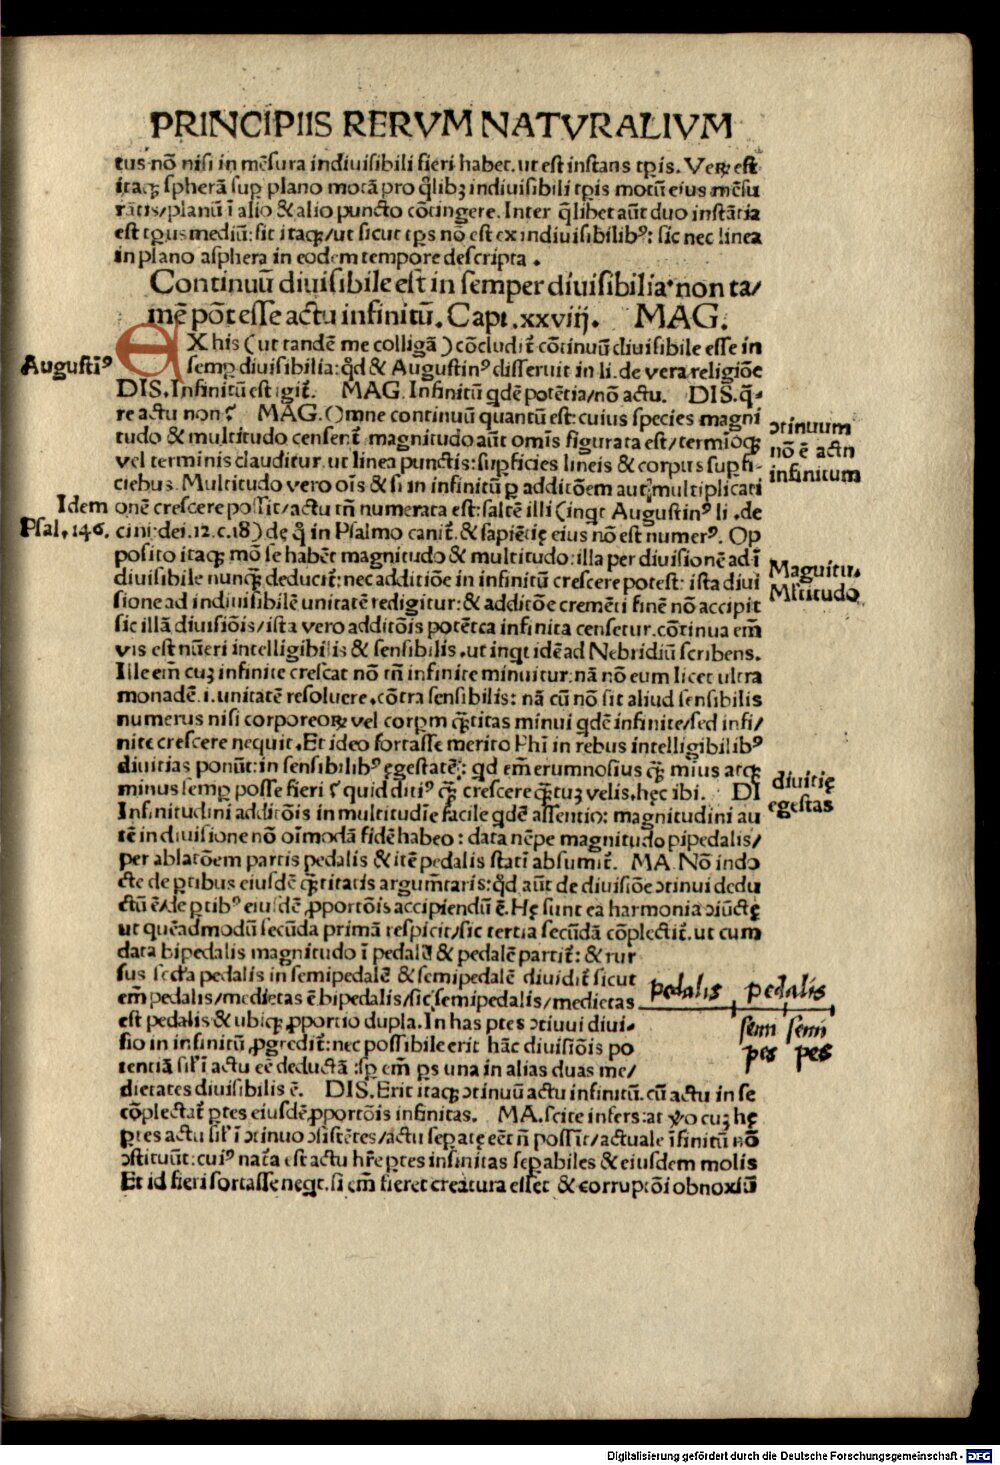 PRINCIPIIS RERVM NATVRALIVM
tus nō nisi in mēsura indiuisibili fieri habet. ut est instans tp̄is. Veꝝ est
itaqꝫ spherā sup plano motā pro q̄libꝫ indiuisibili tp̄is motū eius mēsu
rātis/planū ī alio & alio puncto cōtingere. Inter q̄libet aūt duo instātia
est tp̄us mediū: sit itaqꝫ/ut sicut tp̄s nō est ex indiuisibilibꝰ: sic nec linea
in plano asphera in eodem tempore descripta.
Continuū diuisibile est in semper diuisibilia: non ta/
mē pōt esse actu infinitū. Capt. xxviij. MAG.
EX his (ut tandē me colligā) cōcludit̄ cōtinuū diuisibile esse in
Augustīꝰ
semp̱ diuisibilia: qd̄ & Augustinꝰ disseruit in li. de vera religiōe
DIS. Infinitū est igit̄. MAG. Infinitū qdē potētia/nō actu. DIS. q̄-
re actu non? MAG. Omne continuū quantū est: cuius species magni
ɔtinuum
tudo & multitudo censent̄. magnitudo aūt omīs figurata est/termīoqꝫ
nō ē actu
vel terminis clauditur. ut linea punctis: sup̱ficies lineis & corpus sup̱fi-
infinitum
ciebus. Multitudo vero oīs & si in infinitū p̱ additōem aut multiplicati
Idem
onē crescere possit/actu tn̄ numerata est: saltē illi (inqt Augustinꝰ li. de
Psal. 146.
ciui. dei. 12. c. 18) de q̄ in Psalmo canit̄. & sapiētię eius nō est numerꝰ. Op
posito itaqꝫ mō se habēt magnitudo & multitudo: illa per diuisionē ad ī
Magnitu.
diuisibile nunqꝫ̄ deducit̄: nec additiōe in infinitū crescere potest: ista diui
Mltitudo
sione ad indiuisibilē unitatē redigitur: & additōe cremēti finē nō accipit
sic illā diuisiōis/ista vero additōis potētia infinita censetur. cōtinua em̄
vis est nūeri intelligibilis & sensibilis. ut inqt idē ad Nebridiū scribens.
Ille em̄ cuꝫ infinite crescat nō tn̄ infinite minuitur: nā nō eum licet ultra
monadē .i. unitatē resoluere. cōtra sensibilis: nā cū nō sit aliud sensibilis
numerus nisi corporeoꝝ vel corpm̄ qꝫ̄titas minui qdē infinite/sed infi/
nite crescere nequit. Et ideo fortasse merito Phī in rebus intelligibilibꝰ
diuitias ponūt: in sensibilibꝰ egestatē: qd em̄ erumnosius qꝫ̄ mīus atqꝫ
diuitię
minus semp̱ posse fieri? quid ditiꝰ qꝫ̄ crescere qꝫ̄tuꝫ velis. hęc ibi. DI
egestas
Infinitudini additōis in multitudīe facile qdē assentio: magnitudini au
tē in diuisione nō oīmodā fidē habeo: data nēpe magnitudo pipedalis/
per ablatōem partis pedalis & itē pedalis statī absumit̄. MA. Nō indo
cte de p̱tibus eiusdē qꝫ̄titatis argumētaris: qd̄ aūt de diuisiōe ɔtinui dedu
ctū ē/de p̱tibꝰ eiusdē ꝓportōis accipiendū ē. Hę sunt ea harmonia ɔiūctę
ut quēadmodū secūda primā respicit/sic tertia secūdā cōplectit̄. ut cum
data bipedalis magnitudo ī pedalē & pedalē partit̄: & rur
sus secta pedalis in semipedalē & semipedalē diuidit̄ sicut
em̄ pedalis/medietas ē bipedalis/sic semipedalis/medietas
pedalis pedalis
est pedalis & ubiqꝫ ꝓportio dupla. In has p̱tes ɔtiuui diui-
semi semi
sio in infinitū ꝓgredit̄: nec possibile erit hāc diuisiōis po
pes pes
tentiā sil̄ ī actu eē deductā: sp̱ em̄ p̱s una in alias duas me/
dietates diuisibilis ē. DIS. Erit itaqꝫ ɔtinuū actu infinitū. cū actu in se
cōplectat̄ p̱tes eiusdē ꝓportōis infinitas. MA. scite infers: at ꝟo cuꝫ hę
p̱tes actu sil̄ ī ɔtinuo ɔsistētes/actu sep̱atę eēt n̄ possīt/actuale īfinitū nō
ɔstituūt: cuiꝰ nat̄a est actu hr̄e p̱tes infinitas sep̱abiles & eiusdem molis
Et id fieri fortasse neqt. si em̄ fieret creatura esset & corruptōi obnoxiū
Digitalisierung gefördert durch die Deutsche Forschungsgemeinschaft - DFG